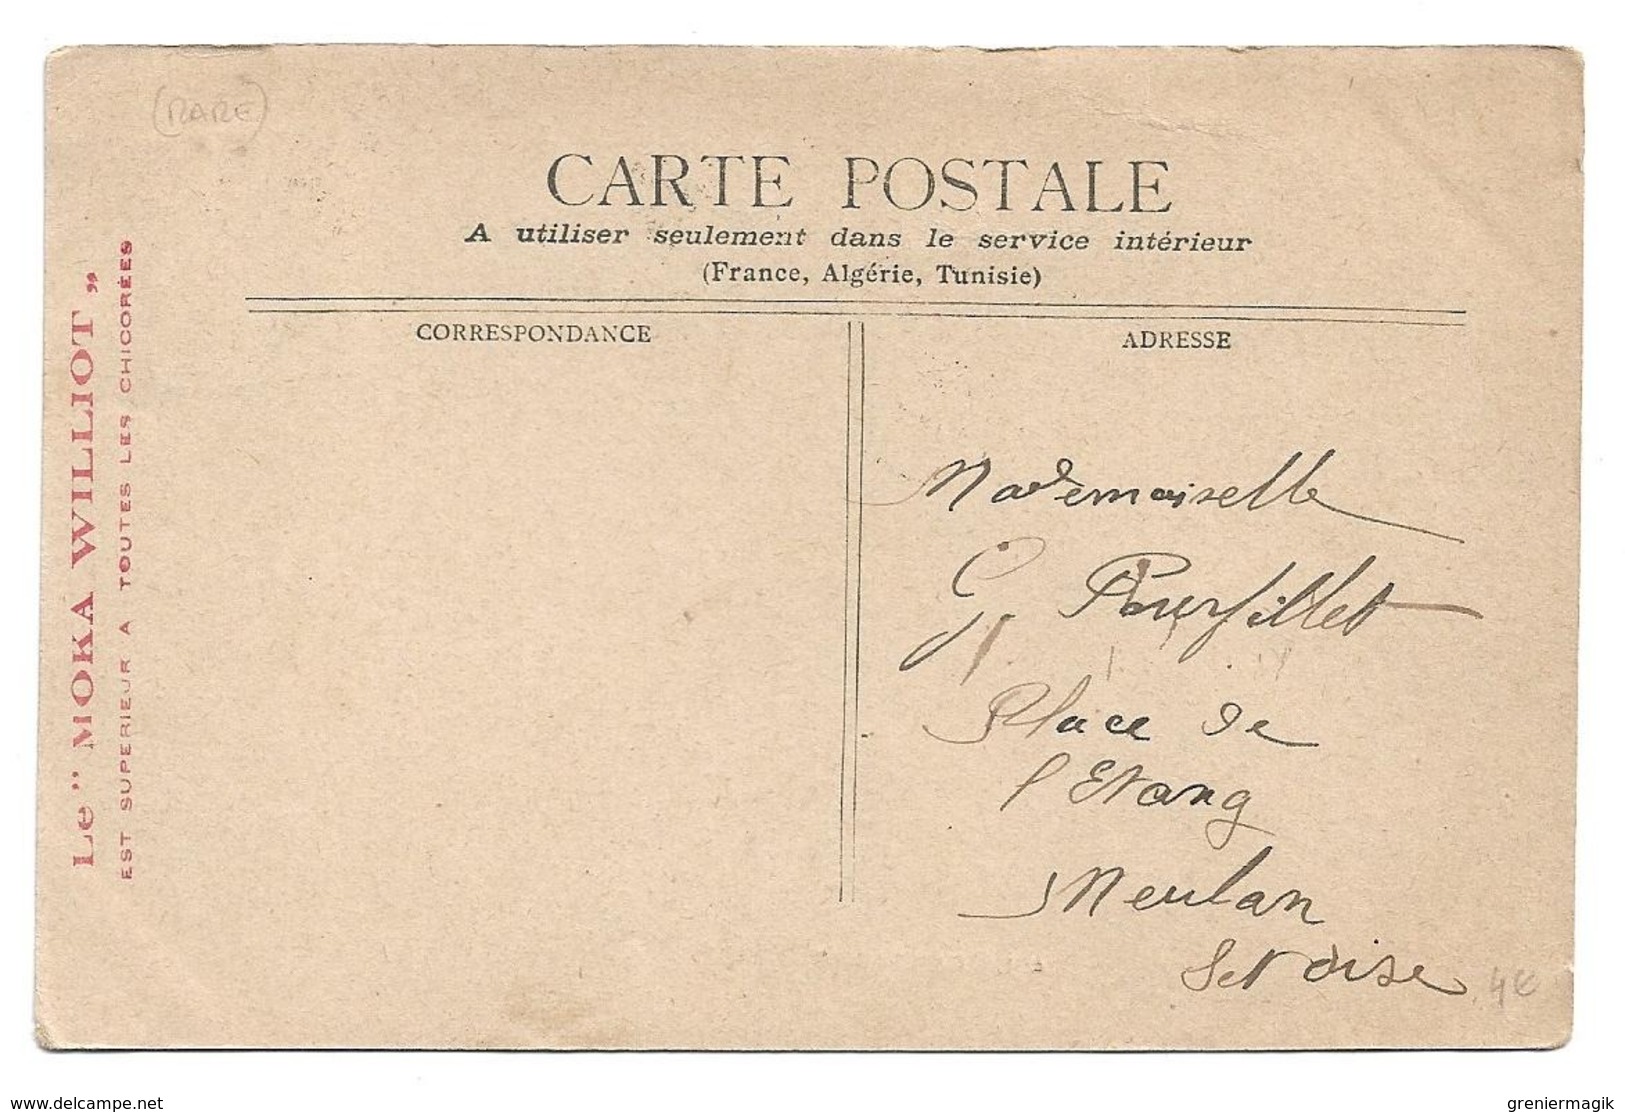 (RARE)
CARTE POSTALE
A utiliser seulement dans le service intérieur
(France, Algérie, Tunisie)
CORRESPONDANCE
ADRESSE
Le "MOKA WILLIOT„
EST SUPERIEUR A TOUTES LES CHICORÉES
Mademoiselle
G. Pourfillet
Place de
l'Etang
Meulan
S et Oise
4€
www.delcampe.net
greniermagik